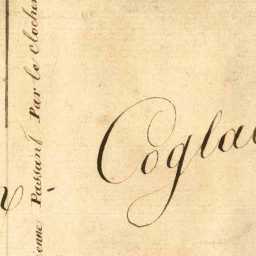 enne Passant Par le Clocher
Cogla